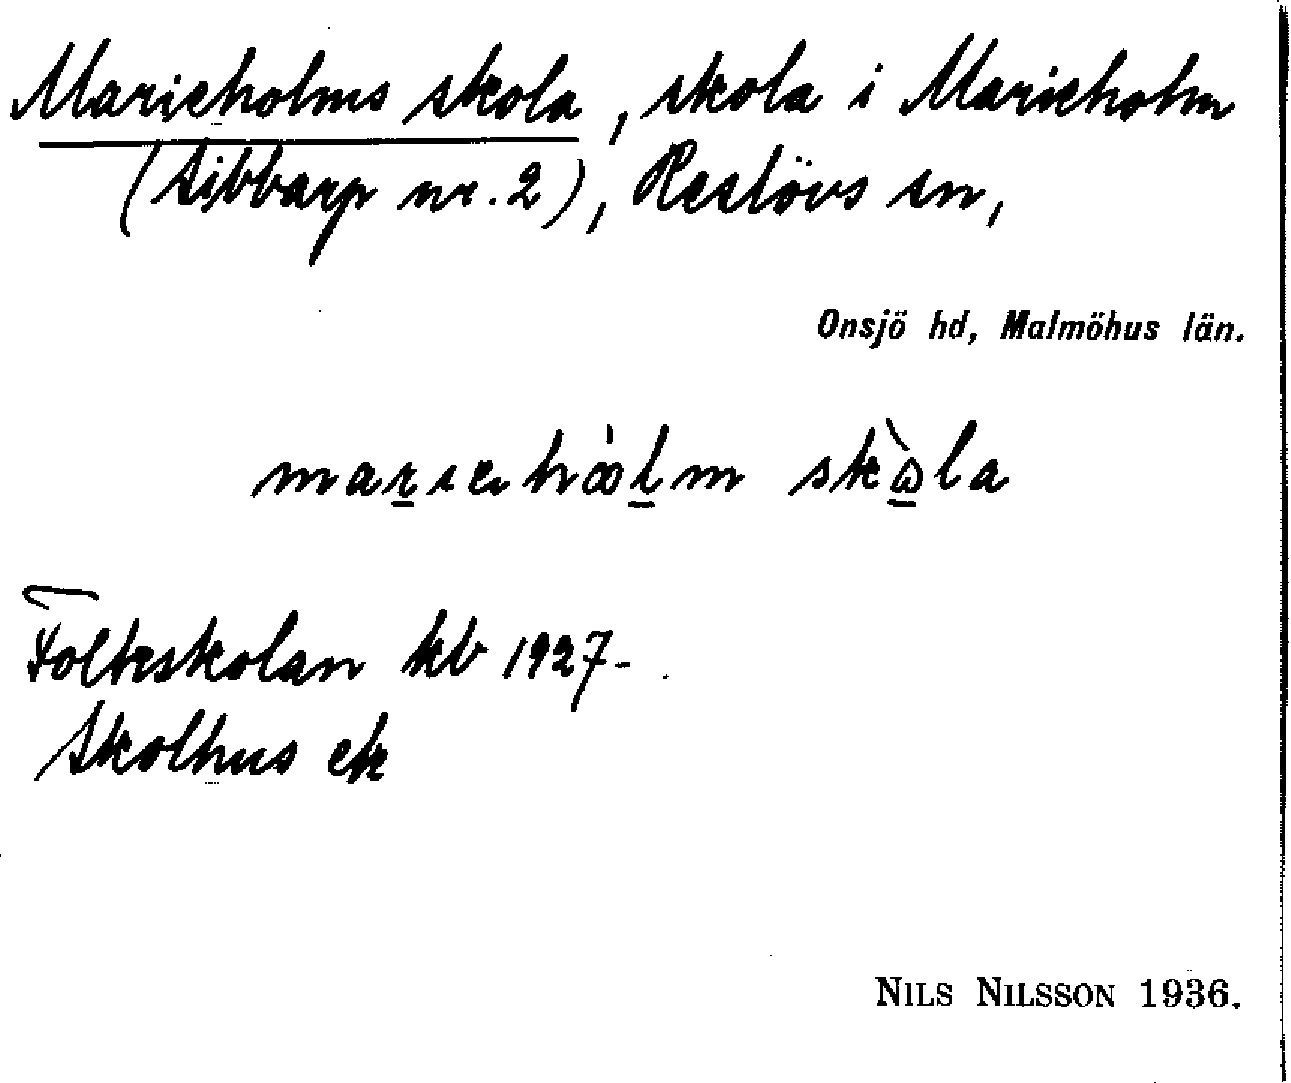 Marieholms skola, skola i Marieholm
(Sibbarp nr. 2), Reslövs sn,
Onsjö hd, Malmöhus län.
skola
Folkskolan kb 1927-
Skolhus ek
NILS NILSSON 1936.